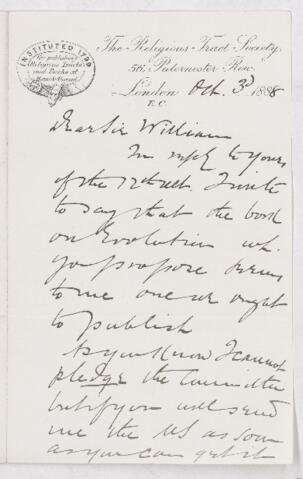 INSTITUTED 1799
for publishing
Religious Tracts
and Books at
Home & Abroad
The Religious Tract Society,
56, Paternoster Row,
London Oct. 3d 1888
E.C.
Dear Sir William
In reply to yours
of the 12th ult. I write
to say that the book
on Evolution wh.
you propose seems
to me one we ought
to publish
As you know I cannot
pledge the Committee
but if you will send
me the MS as soon
as you can get it